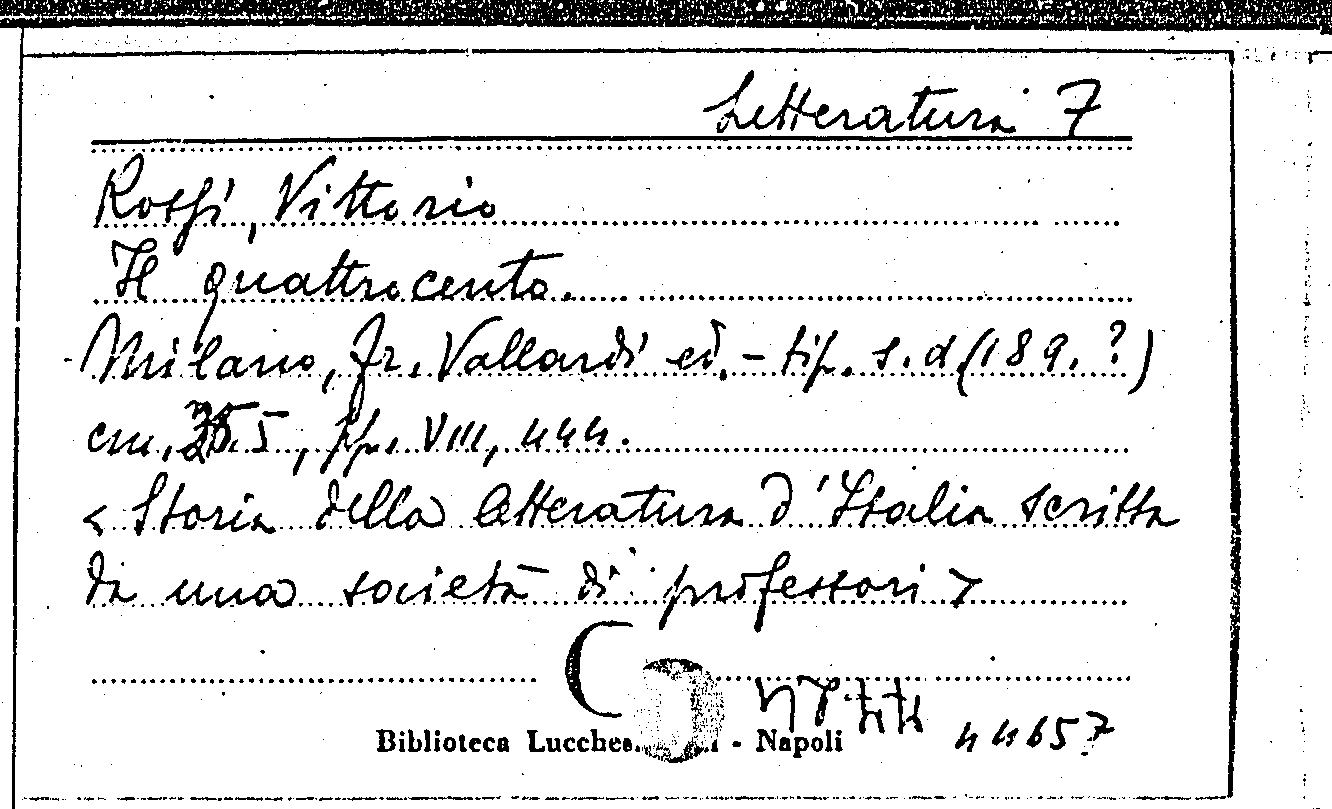 Letteratura 7
Rossi, Vittorio
Il quattrocento.
Milano, Fr. Vallardi ed. - tip. s. d. (189. ?)
cm. 5, pp. VIII, 444.
< Storia della letteratura d'Italia scritta
da una società di professori >
Biblioteca - Napoli
44657